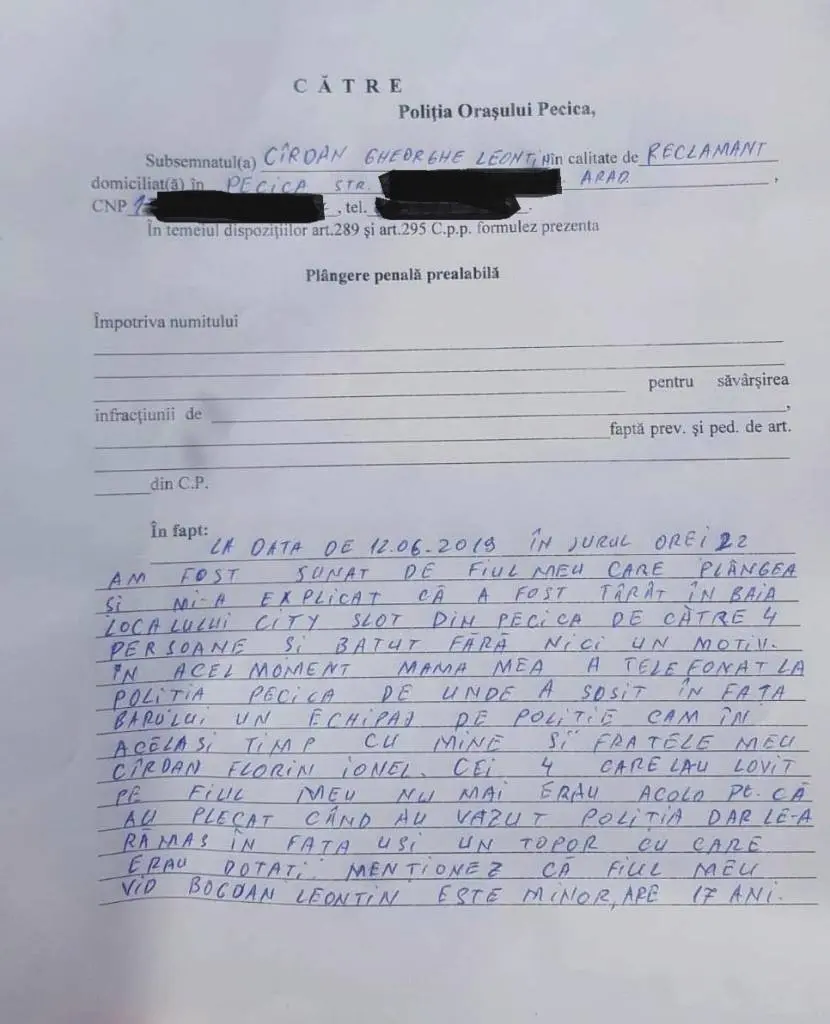 CĂTRE
Poliția Orașului Pecica,
Subsemnatul(a) CÎRDAN GHEORGHE LEONTIN în calitate de RECLAMANT
domiciliat(ă) în PECICA STR. ARAD,
CNP 1 , tel. .
În temeiul dispozițiilor art.289 și art.295 C.p.p. formulez prezenta
Plângere penală prealabilă
Împotriva numitului
pentru săvârșirea
infracțiunii de ,
faptă prev. și ped. de art.
din C.P.
În fapt:
LA DATA DE 12.06.2019 ÎN JURUL OREI 22
AM FOST SUNAT DE FIUL MEU CARE PLÂNGEA
ȘI MI-A EXPLICAT CĂ A FOST TÂRÂT ÎN BAIA
LOCALULUI CITY SLOT DIN PECICA DE CĂTRE 4
PERSOANE SI BATUT FĂRĂ NICI UN MOTIV.
ÎN ACEL MOMENT MAMA MEA A TELEFONAT LA
POLITIA PECICA DE UNDE A SOSIT ÎN FAȚA
BARULUI UN ECHIPAJ DE POLITIE CAM ÎN
ACELASI TIMP CU MINE SI FRATELE MEU
CÎRDAN FLORIN IONEL. CEI 4 CARE LAU LOVIT
PE FIUL MEU NU MAI ERAU ACOLO PT. CĂ
AU PLECAT CÂND AU VAZUT POLITIA DAR LE-A
RĂMAS ÎN FATA USI UN TOPOR CU CARE
ERAU DOTATI. MENTIONEZ CĂ FIUL MEU
VID BOGDAN LEONTIN ESTE MINOR, ARE 17 ANI.